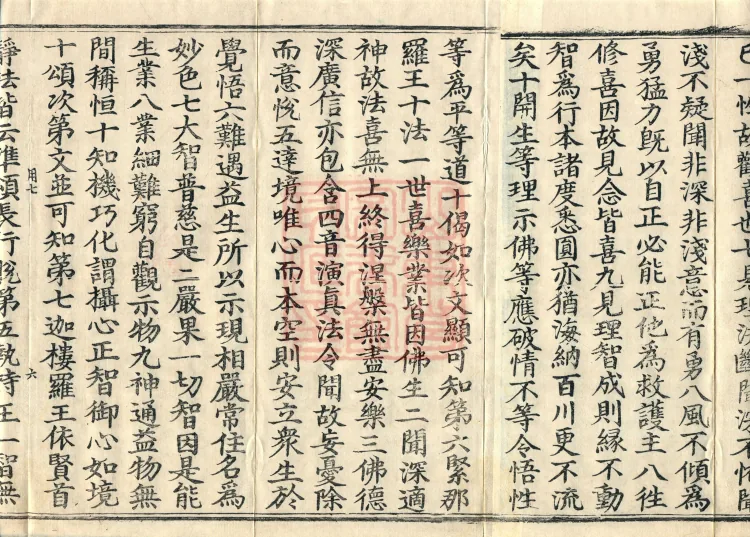 已一悅故觀喜世七見理決斷聞法不怖聞
淺不疑聞非深非淺意而有勇八風不傾為
勇猛力既以自正必能正他為救護主八徃
修喜因故見念皆喜九見理智成則緣不動
智為行本諸度悉圓亦猶海納百川更不流
矣十開生等理示佛等應破情不等令悟性
等為平等道十偈如次文顯可知第六緊那
羅王十法一世喜樂業皆因佛生二聞深適
神故法喜無上終得涅槃無盡安樂三佛德
深廣信亦包含四音演真法令聞故妄憂除
而意悅五達境唯心而本空則安立衆生於
覺悟六難遇益生所以示現相嚴常住名為
妙色七大智普慈是二嚴果一切智因是能
生業八業細難窮自觀示物九神通益物無
間稱恒十知機巧化謂攝心正智御心如境
用七 六
十頌次第文並可知第七迦樓羅王依賢首
靜法皆云準頌長行脫第五執持王一智無